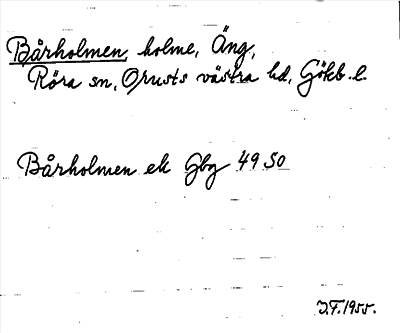 Bårholmen, holme, Äng,
Röra sn, Orusts västra hd, Gökb. l.
Bårholmen ek Gbg 49 50
J.F. 1955.